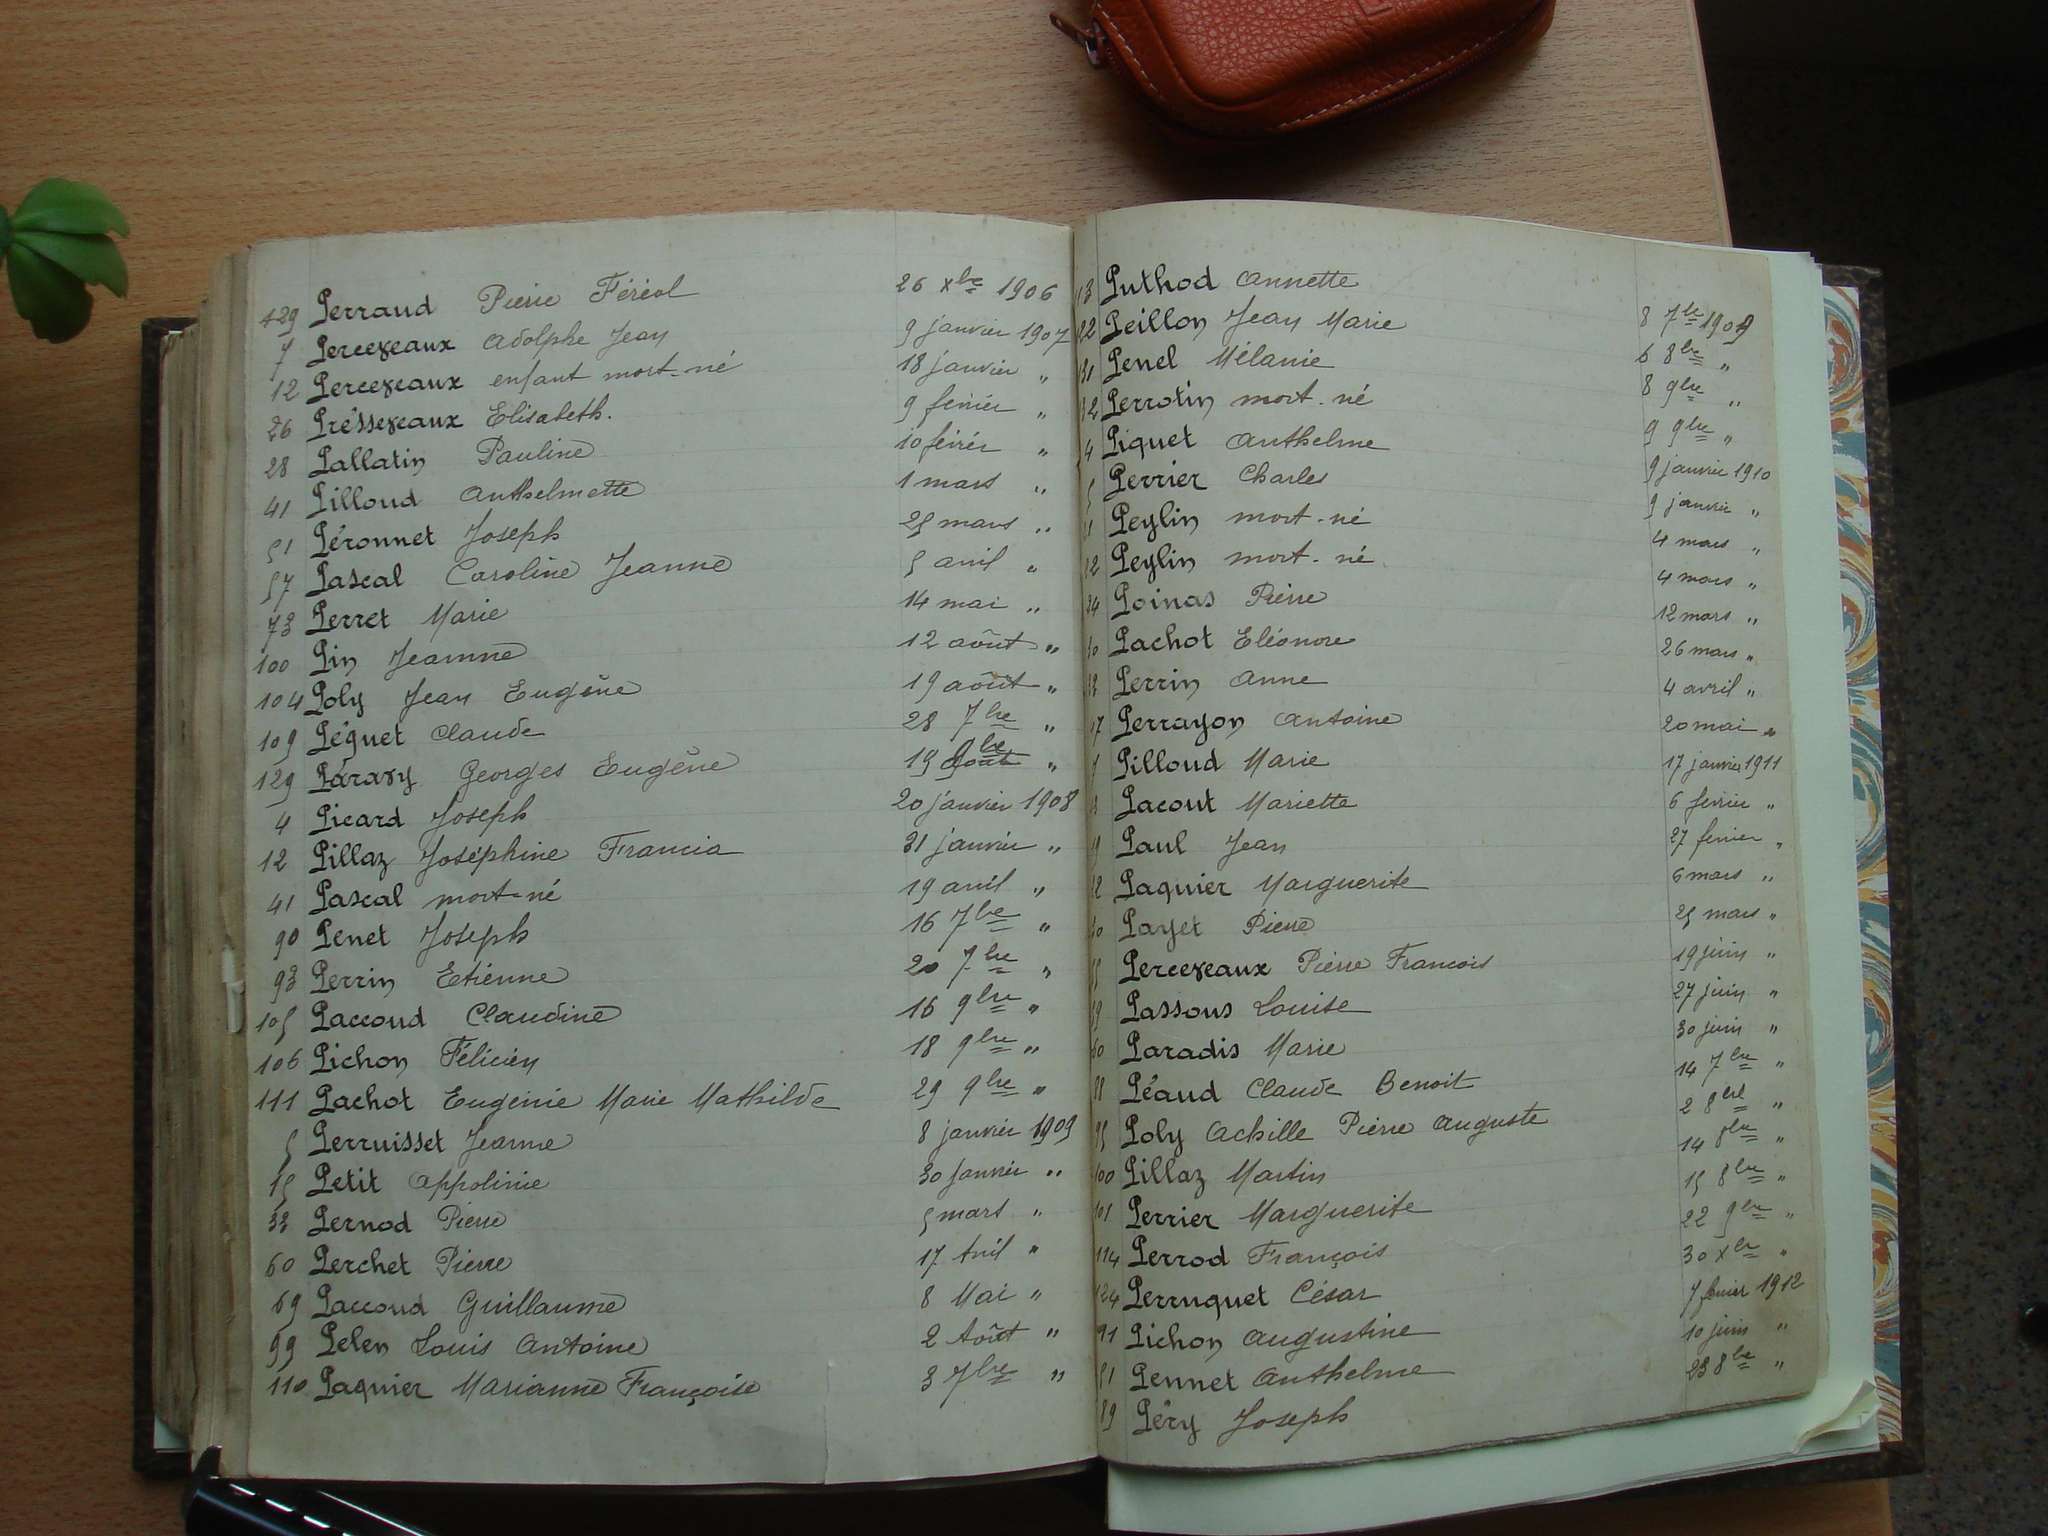 129 Perraud Pierre Féréol 26 xbre 1906
7 Percevaux Adolphe Jean 9 janvier 1907
12 Percevaux enfant mort-né 18 janvier "
26 Pressevaux Elisabeth. 9 fevrier "
28 Pallatin Pauline 10 février "
41 Pilloud Anthelmette 1 mars "
51 Péronnet Joseph 25 mars "
57 Pascal Caroline Jeanne 5 avril "
73 Perret Marie 14 mai "
100 Pin Jeanne 12 août "
104 Poly Jean Eugène 19 août "
109 Péguet Claude 28 7bre "
129 Paravy Georges Eugène 19 9bre "
4 Picard Joseph 20 janvier 1908
12 Pillaz Joséphine Francia 31 janvier "
41 Pascal mort-né 19 avril "
90 Penet Joseph 16 7bre "
93 Perrin Etienne 20 7bre "
105 Paccoud Claudine 16 9bre "
106 Pichon Félicien 18 9bre "
111 Pachot Eugénie Marie Mathilde 29 9bre "
5 Perruisset Jeanne 8 janvier 1909
15 Petit Appolinie 30 Janvier "
33 Pernod Pierre 5 mars "
60 Perchet Pierre 17 Avril "
69 Paccoud Guillaume 8 Mai "
99 Pelen Louis Antoine 2 Août "
110 Paquier Marianne Françoise 3 7bre "
Puthod Annette 8 7bre 1909
Peillon Jean Marie 6 8bre "
Penel Mélanie 8 9bre "
Perrotin mort-né 9 9bre "
Piquet Anthelme 9 janvier 1910
Perrier Charles 9 janvier "
Peylin mort-né 4 mars "
Peylin mort-né 4 mars "
Poinas Pierre 12 mars "
Pachot Eléonore 26 mars "
Perrin Anne 4 avril "
Perrayon Antoine 20 mai "
Pilloud Marie 17 janvier 1911
Pacout Mariette 6 fevrier "
Paul Jean 27 fevrier "
Paquier Marguerite 6 mars "
Payet Pierre 25 mars "
Percevaux Pierre Francois 19 juin "
Passous Louise 27 juin "
Paradis Marie 30 juin "
Péaud Claude Benoit 14 7bre "
Poly Achille Pierre Auguste 2 8bre "
100 Pillaz Martin 14 8bre "
101 Perrier Marguerite 15 8bre "
114 Perrod François 22 9bre "
124 Perruquet César 30 xbre "
Pichon Augustine 7 fevrier 1912
51 Pennet Anthelme 10 juin "
89 Péry Joseph 23 8bre "